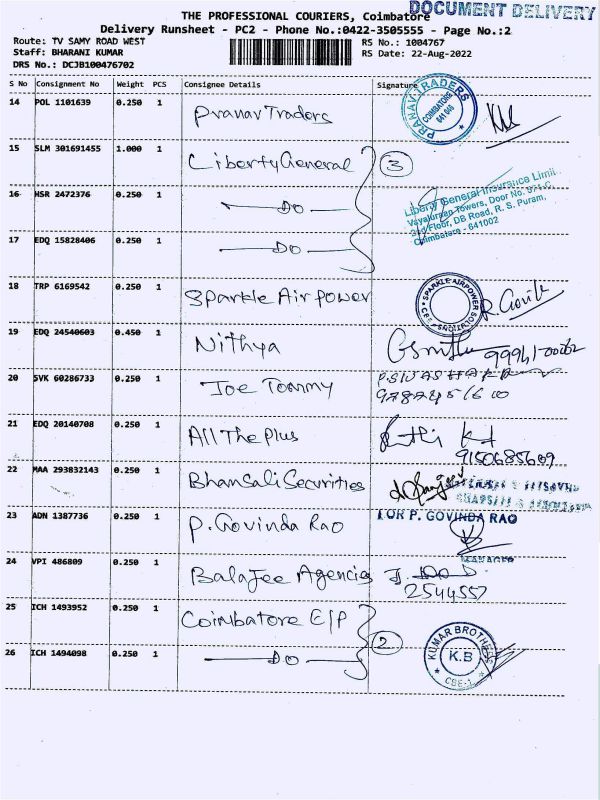 DOCUMENT DELIVERY
THE PROFESSIONAL COURIERS, Coimbatore
Delivery Runsheet - PC2 - Phone No.:0422-3505555 - Page No.:2
Route: TV SAMY ROAD WEST
RS No.: 1004767
Staff: BHARANI KUMAR
RS Date: 22-Aug-2022
DRS No.: DCJB100476702
S No Consignment No Weight PCS Consignee Details Signature
14 POL 1101639 0.250 1 Pranav Traders
PRANAV TRADERS COIMBATORE
15 SLM 301691455 1.000 1 Liberty General 3
16 HSR 2472376 0.250 1 DO
Liberty General Insurance Limi
Towers, Door No.
3rd Floor, DB Road, R. S. Puram,
Coimbatore - 641002
17 EDQ 15828406 0.250 1 DO
18 TRP 6169542 0.250 1 Sparkle Air power
SPARKLE AIRPOWER SOLUTIONS CBE
19 EDQ 24540603 0.450 1 Nithya
20 SVK 60286733 0.250 1 Joe Tommy
21 EDQ 20140708 0.250 1 All The Plus
9150685609
22 MAA 293832143 0.250 1 Bhansali Securities
23 ADN 1387736 0.250 1 P. Govinda Rao
FOR P. GOVINDA RAO
MANAGER
24 VPI 486809 0.250 1 Balajee Agencies
2544557
25 ICH 1493952 0.250 1 Coimbatore E/P
2
26 ICH 1494098 0.250 1 DO
KUMAR BROTHERS
K.B
CBE-1